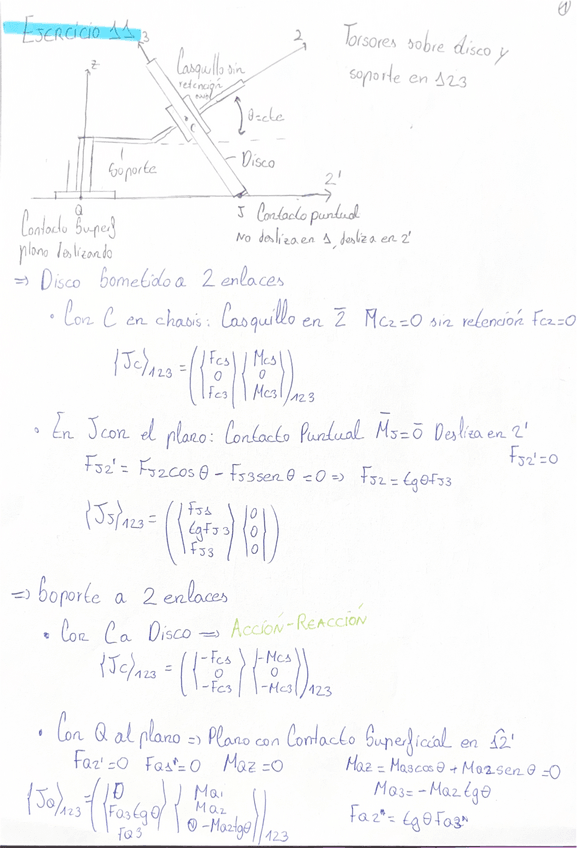 ①
EJERCICIO 11
Torsores sobre disco y
soporte en 123
3
2
z
Casquillo sin
retención
θ=cte
C
Disco
Soporte
2'
Q
J
Contacto Superf
plano deslizando
Contacto puntual
No desliza en 1, desliza en 2'
⇒ Disco Sometido a 2 enlaces
• Con C en chasis: Casquillo en 2̄ Mc2=0 sin retención Fc2=0
{Jc}123 = ({Fc1 0 Fc3} {Mc1 0 Mc3})123
• En J con el plano: Contacto Puntual M̄J=0̄ Desliza en 2'
FJ2'=0
FJ2' = FJ2cosθ - FJ3senθ = 0 ⇒ FJ2 = tgθFJ3
{JJ}123 = ({FJ1 tgFJ3 FJ3} {0 0 0})
⇒ Soporte a 2 enlaces
• Con C a Disco ⇒ ACCIÓN-REACCIÓN
{Jc}123 = ({-Fc1 0 -Fc3} {-Mc1 0 -Mc3})123
• Con Q al plano ⇒ Plano con Contacto Superficial en 12'
FQ2'=0 FQ1"=0 MQz=0
MQz = MQ3cosθ + MQ2senθ = 0
MQ3 = -MQ2tgθ
FQ2" = tgθFQ3"
{JQ}123 = ({0 FQ3tgθ FQ3} {MQ1 MQ2 -MQ2tgθ})123